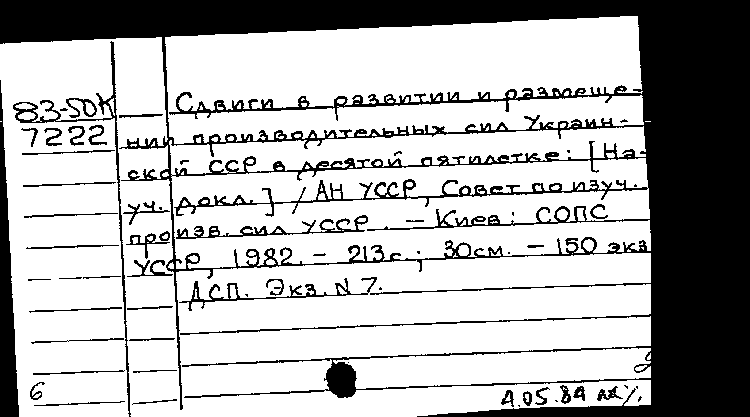 83-50К Сдвиги в развитии и размеще-
7222 нии производительных сил Украин-
ской ССР в десятой пятилетке: [На-
уч. докл.] / АН УССР, Совет по изуч.
произв. сил УССР. - Киев: СОПС
УССР, 1982. - 213с.; 30см. - 150 экз
ДСП. Экз. N 7.
6
4.05.84